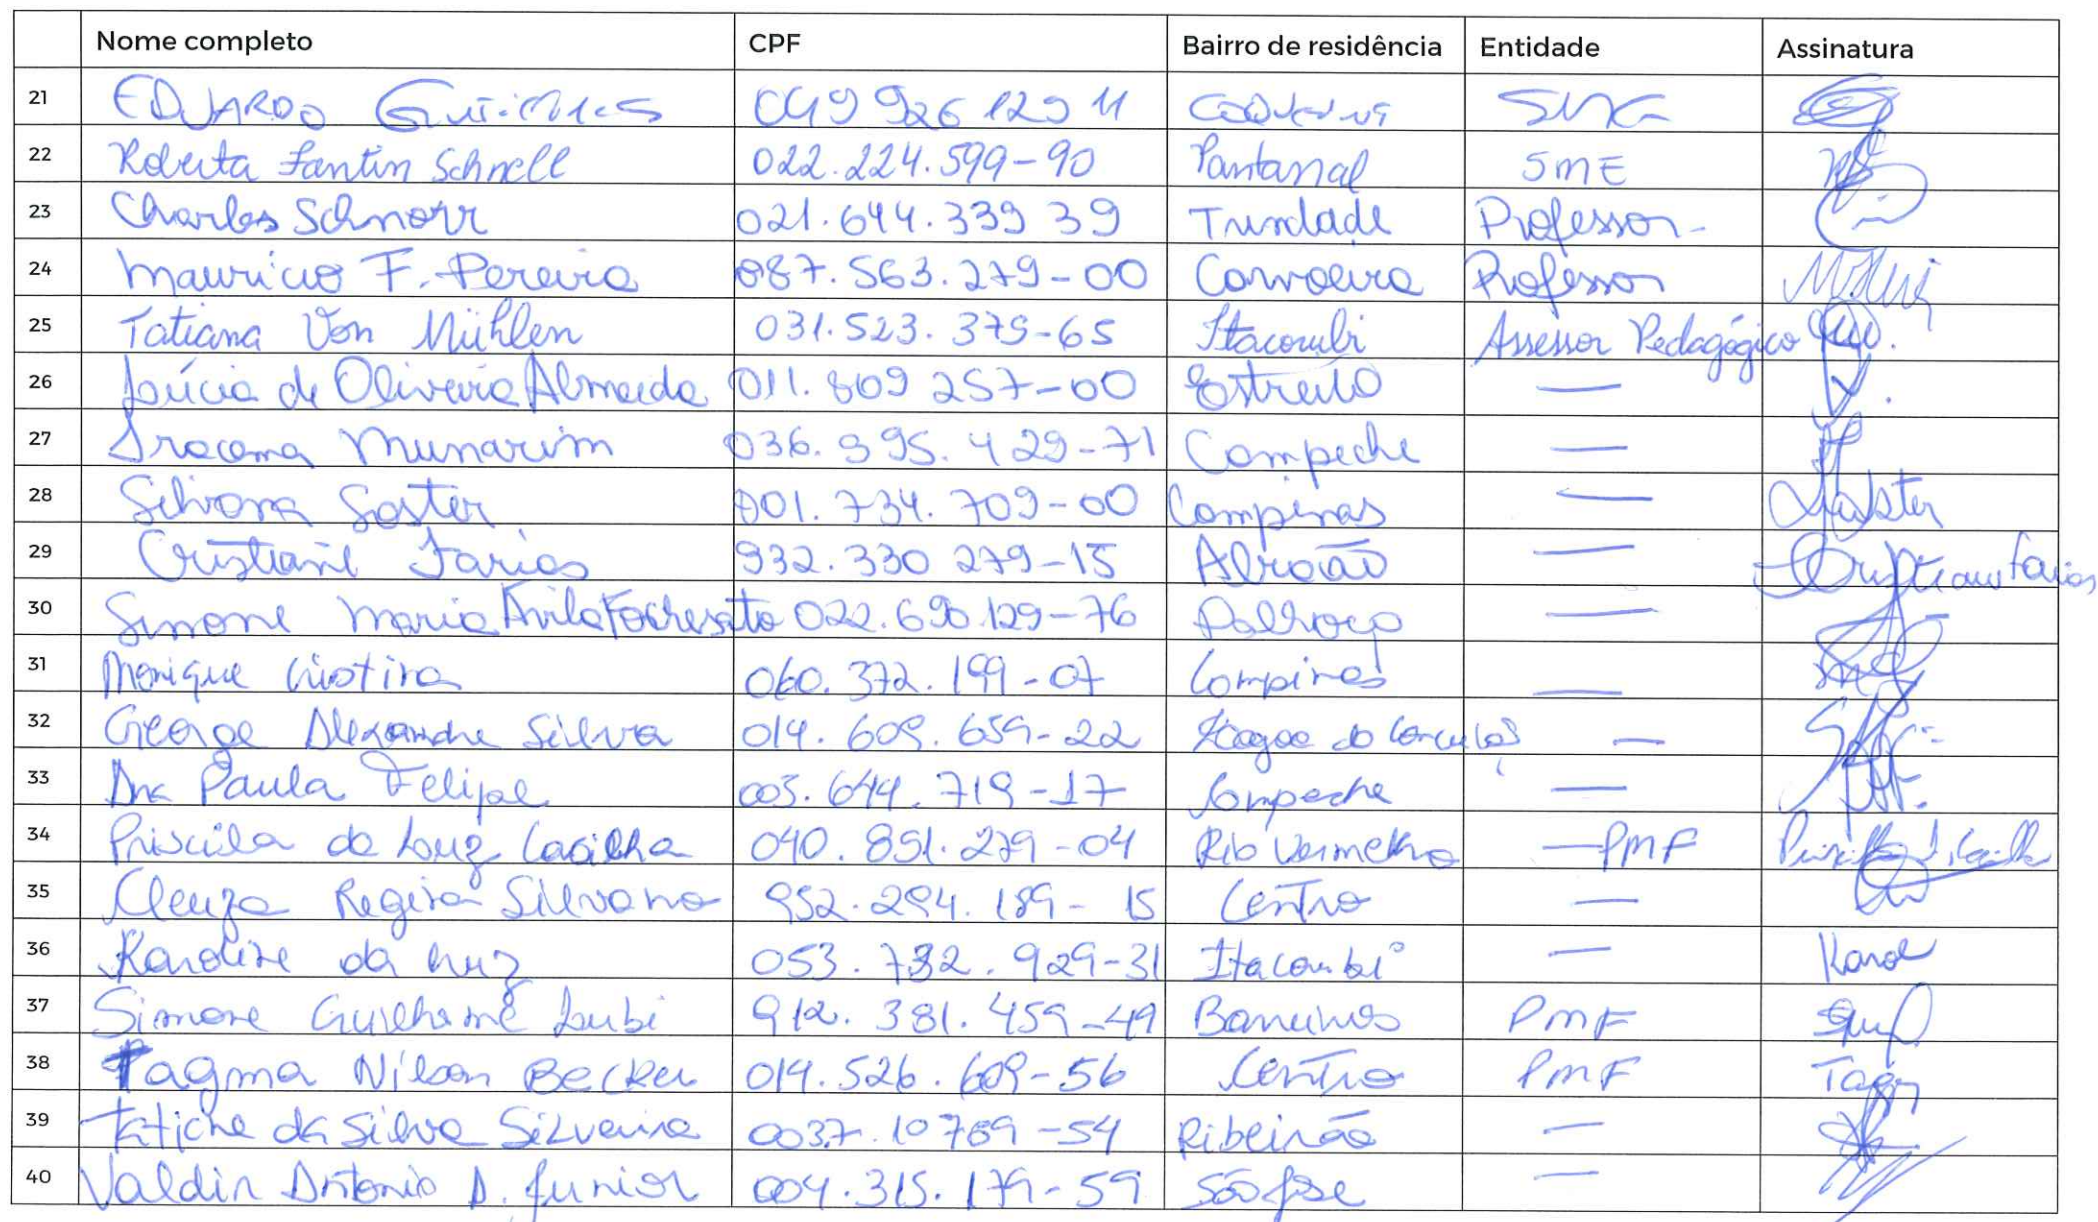 Nome completo CPF Bairro de residência Entidade Assinatura
21 EDUARDO 049 926 129 11
22 Roberta Fantin Schnell 022.224.599-90 Pantanal SME
23 Charles Schnorr 021.644.339 39 Trindade Professor
24 Maurício F. Pereira 887.563.279-00 Carvoeira Professor
25 Tatiana Von Mühlen 031.523.379-65 Itacorubi Assessor Pedagógico
26 Lúcia de Oliveira Almeida 011.809 257-00 Estreito —
27 Iracema Munarim 036.995.429-71 Campeche —
28 Silvana Soster 001.734.709-00 Campinas —
29 Cristiane Farias 932.330 279-15 Abraão — Cristiane Farias
30 Simone Maria Avila Fochesato 022.690.129-76 Palhoça —
31 Monique Cristina 060.372.199-07 Campinas —
32 George Alexandre Silva 014.609.659-22 Lagoa da Conceição —
33 Ana Paula Felipe 003.644.719-17 Campeche —
34 Priscila da Luz 040.851.279-04 Rio Vermelho — PMF
35 Cleuza Regina Silvano 952.294.189-15 Centro —
36 Karoline da Luz 053.732.929-31 Itacorubi — Karol
37 Simone Guilherme Lubi 912.381.459-49 PMF
38 Tagma Nilson Becker 014.526.609-56 Centro PMF
39 da Silva Silveira 0037.10769-54 Ribeirão —
40 Valdir Antonio D. Junior 004.315.179-59 São Jose —